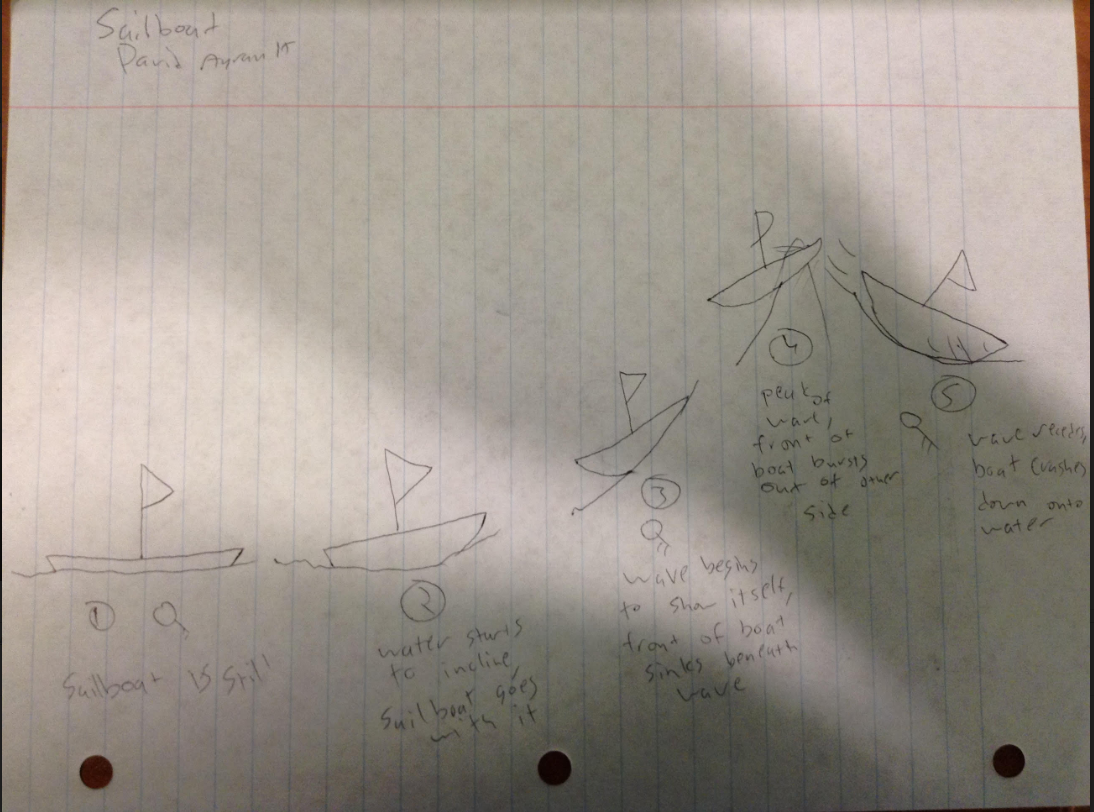 Sailboat
David Ayrault
1
Sailboat is still
2
water starts
to incline,
Sailboat goes
with it
3
wave begins
to show itself,
front of boat
sinks beneath
wave
4
peak of
wave,
front of
boat bursts
out of other
side
5
wave recedes,
boat crashes
down onto
water